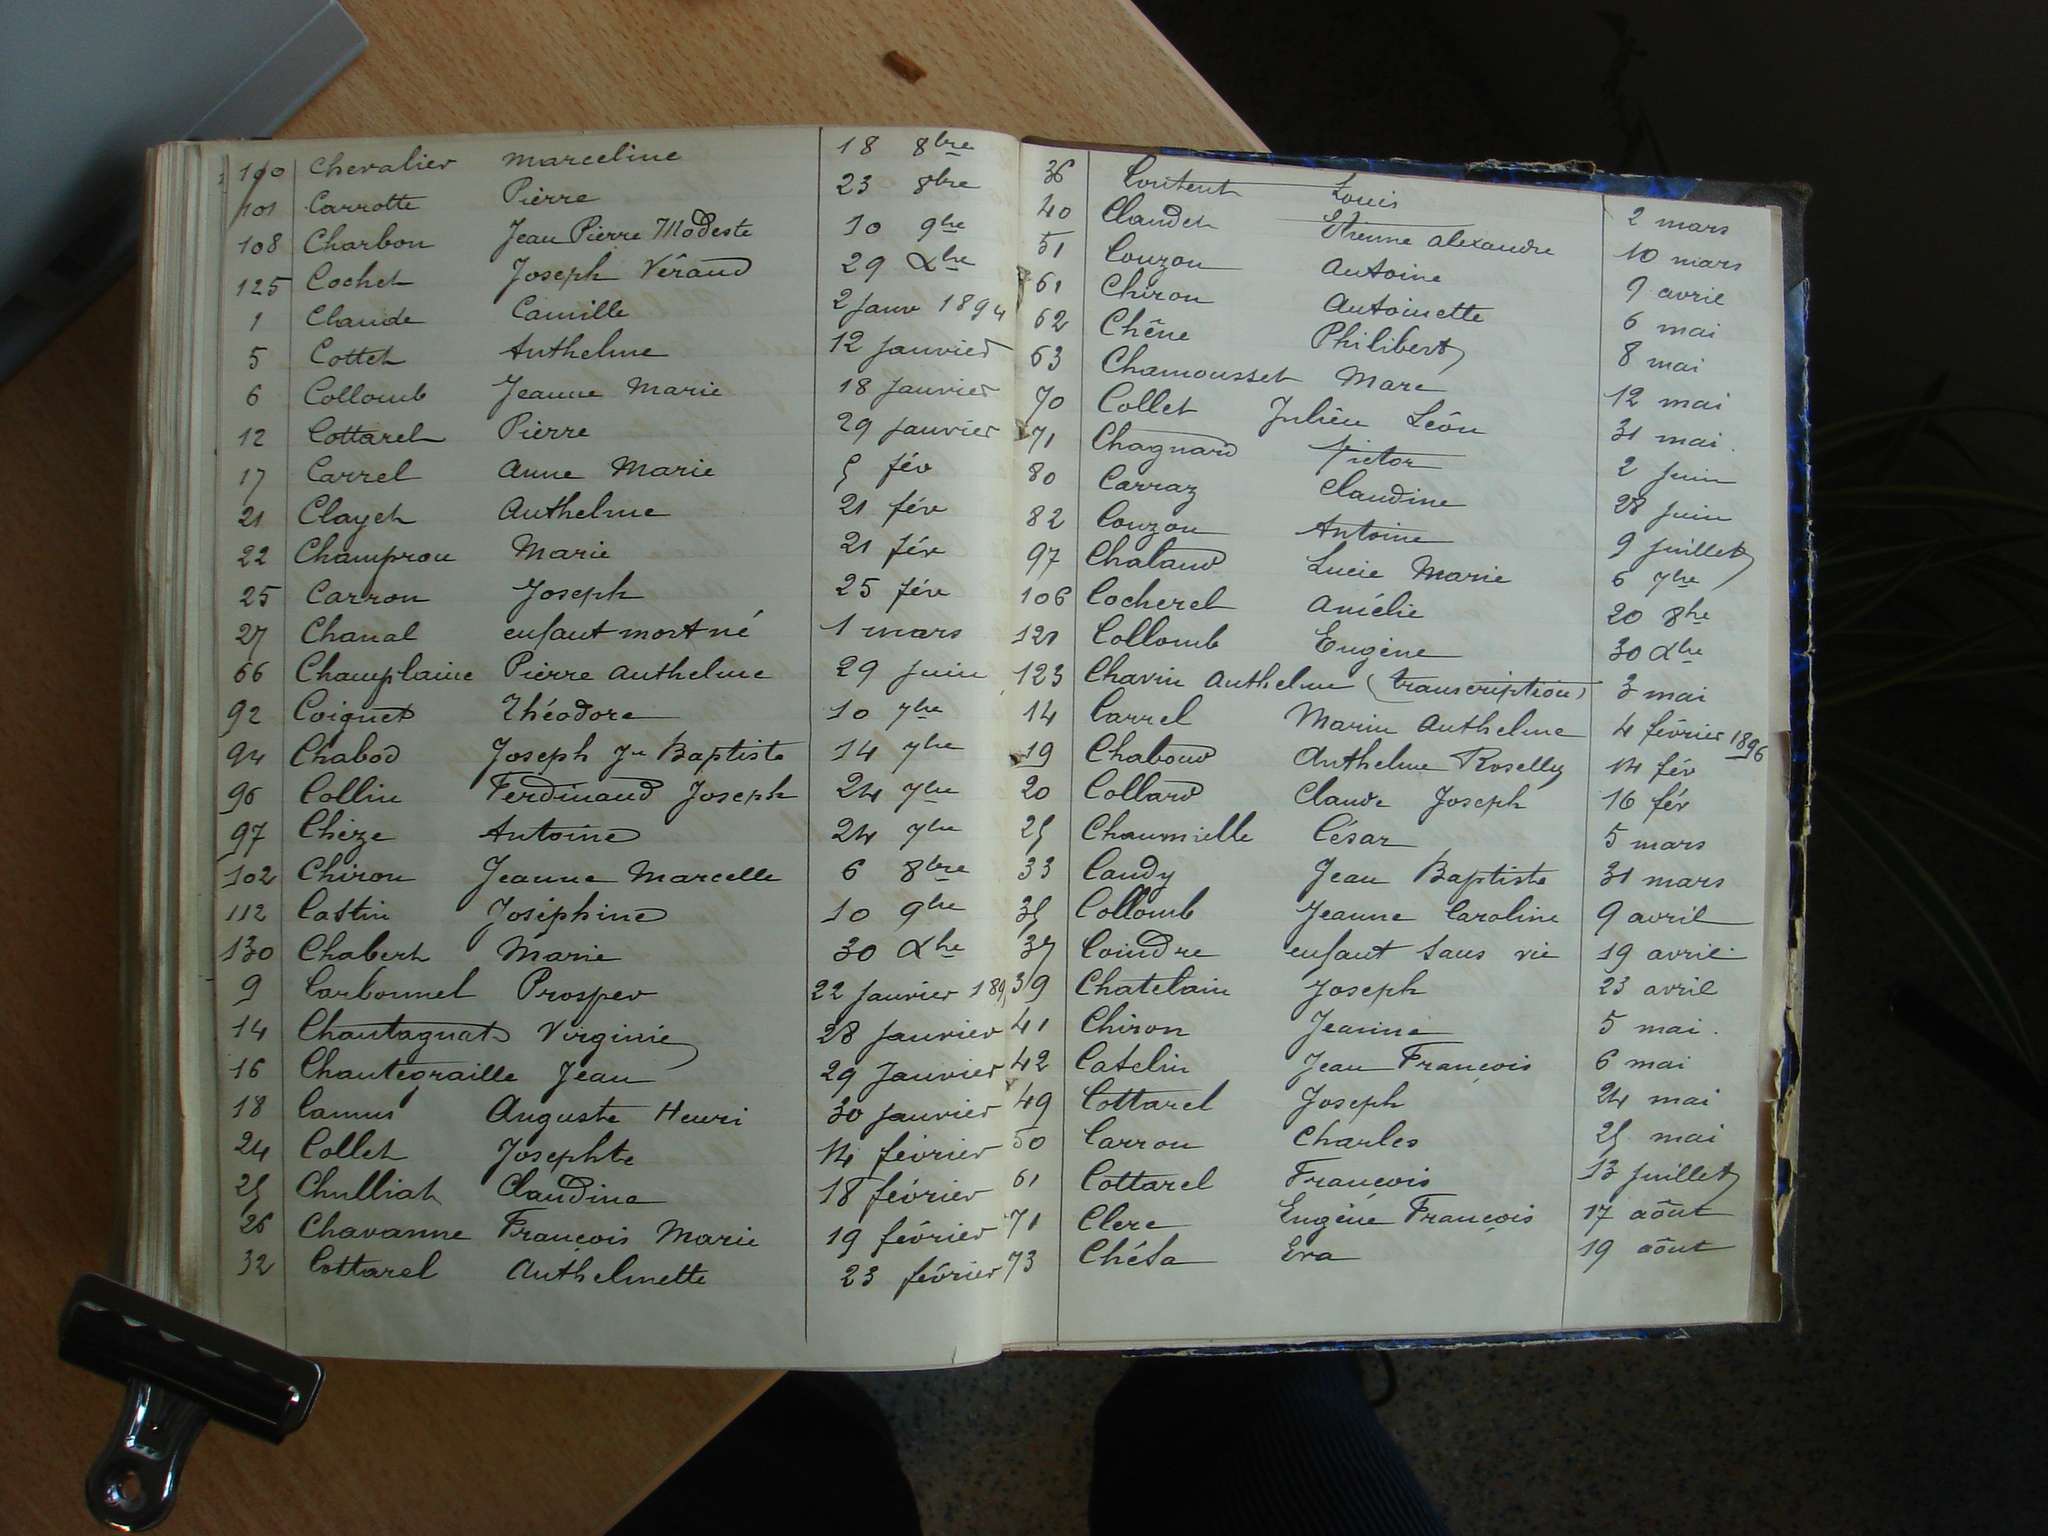 100 Chevalier Marceline 18 8bre
101 Carrotte Pierre 23 8bre
108 Charbon Jean Pierre Modeste 10 9bre
125 Cochet Joseph Véraud 29 Xbre
1 Claude Camille 2 Janv 1894
5 Cottet Anthelme 12 Janvier
6 Collomb Jeanne Marie 18 Janvier
12 Cottarel Pierre 29 Janvier
17 Carrel Anne Marie 5 fév
21 Clayet Anthelme 21 fév
22 Champrou Marie 21 fév
25 Carron Joseph 25 fév
27 Chanal enfant mort né 1 mars
66 Champlaine Pierre Anthelme 29 Juin
92 Coignet Théodore 10 7bre
94 Chabod Joseph Jn Baptiste 14 7bre
96 Collin Ferdinand Joseph 24 7bre
97 Chèze Antoine 24 7bre
102 Chiron Jeanne Marcelle 6 8bre
112 Castin Joséphine 10 9bre
130 Chabert Marie 30 Xbre
9 Carbonnel Prosper 22 Janvier 189
14 Chautagnat Virginie 28 Janvier
16 Chantegraille Jean 29 Janvier
18 Camus Auguste Henri 30 Janvier
24 Collet Josephte 14 février
25 Chulliat Claudine 18 février
26 Chavanne François Marie 19 février
32 Cottarel Anthelmette 23 février
36 Coutent Louis 2 mars
40 Claudet Etienne Alexandre 10 mars
51 Couzon Antoine 9 avril
61 Chiron Antoinette 6 mai
62 Chêne Philibert 8 mai
63 Chamousset Marc 12 mai
70 Collet Julien Léon 31 mai.
71 Chagnard Victor 2 Juin
80 Carraz Claudine 28 Juin
82 Couzon Antoine 9 Juillet
97 Chaland Lucie Marie 6 7bre
106 Cocherel Amélie 20 8bre
121 Collomb Eugène 30 Xbre
123 Chavin Anthelme (transcription) 3 mai
14 Carrel Marin Anthelme 4 février 1896
19 Chaboud Anthelme Roselly 14 fév
20 Collard Claude Joseph 16 fév
25 Chaumielle César 5 mars
33 Caudy Jean Baptiste 31 mars
35 Collomb Jeanne Caroline 9 avril
37 Coindre enfant sans vie 19 avril
39 Chatelain Joseph 23 avril
41 Chiron Jeanne 5 mai.
42 Catelin Jean François 6 mai
49 Cottarel Joseph 24 mai
50 Carron Charles 25 mai
61 Cottarel François 13 Juillet
71 Clerc Eugène François 17 août
73 Chésa Eva 19 août